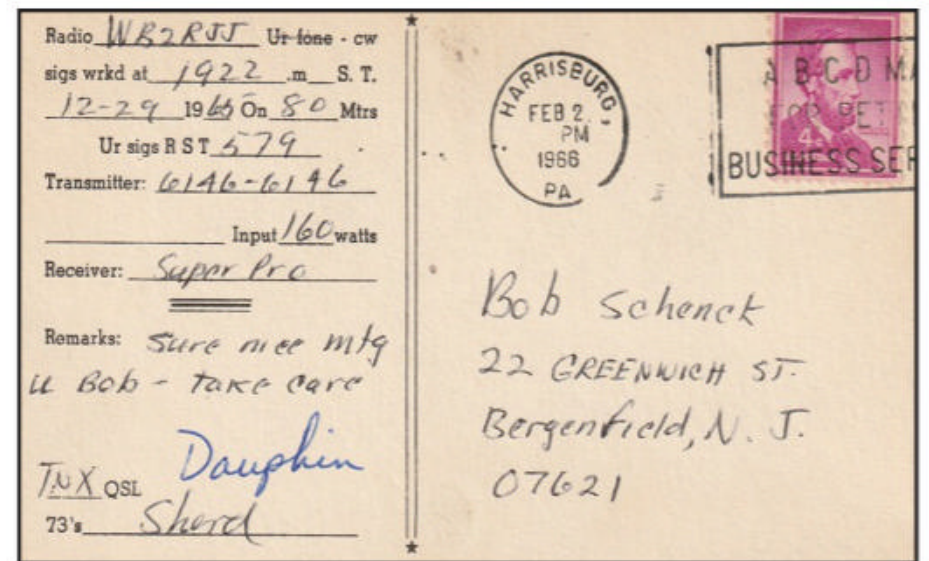 Radio WB2RJJ Ur fone - cw
sigs wrkd at 1922 .m S. T.
12-29 1965 On 80 Mtrs
Ur sigs R S T 579
Transmitter: 6146-6146
Input 160 watts
Receiver: Super Pro
Remarks: Sure nice mtg
u Bob - take care
Dauphin
TNX QSL
73's Sherd
HARRISBURG,
FEB 2
PM
1966
PA
A B C D MA
FOR BET
BUSINESS SER
4
Bob Schenck
22 GREENWICH ST.
Bergenfield, N. J.
07621